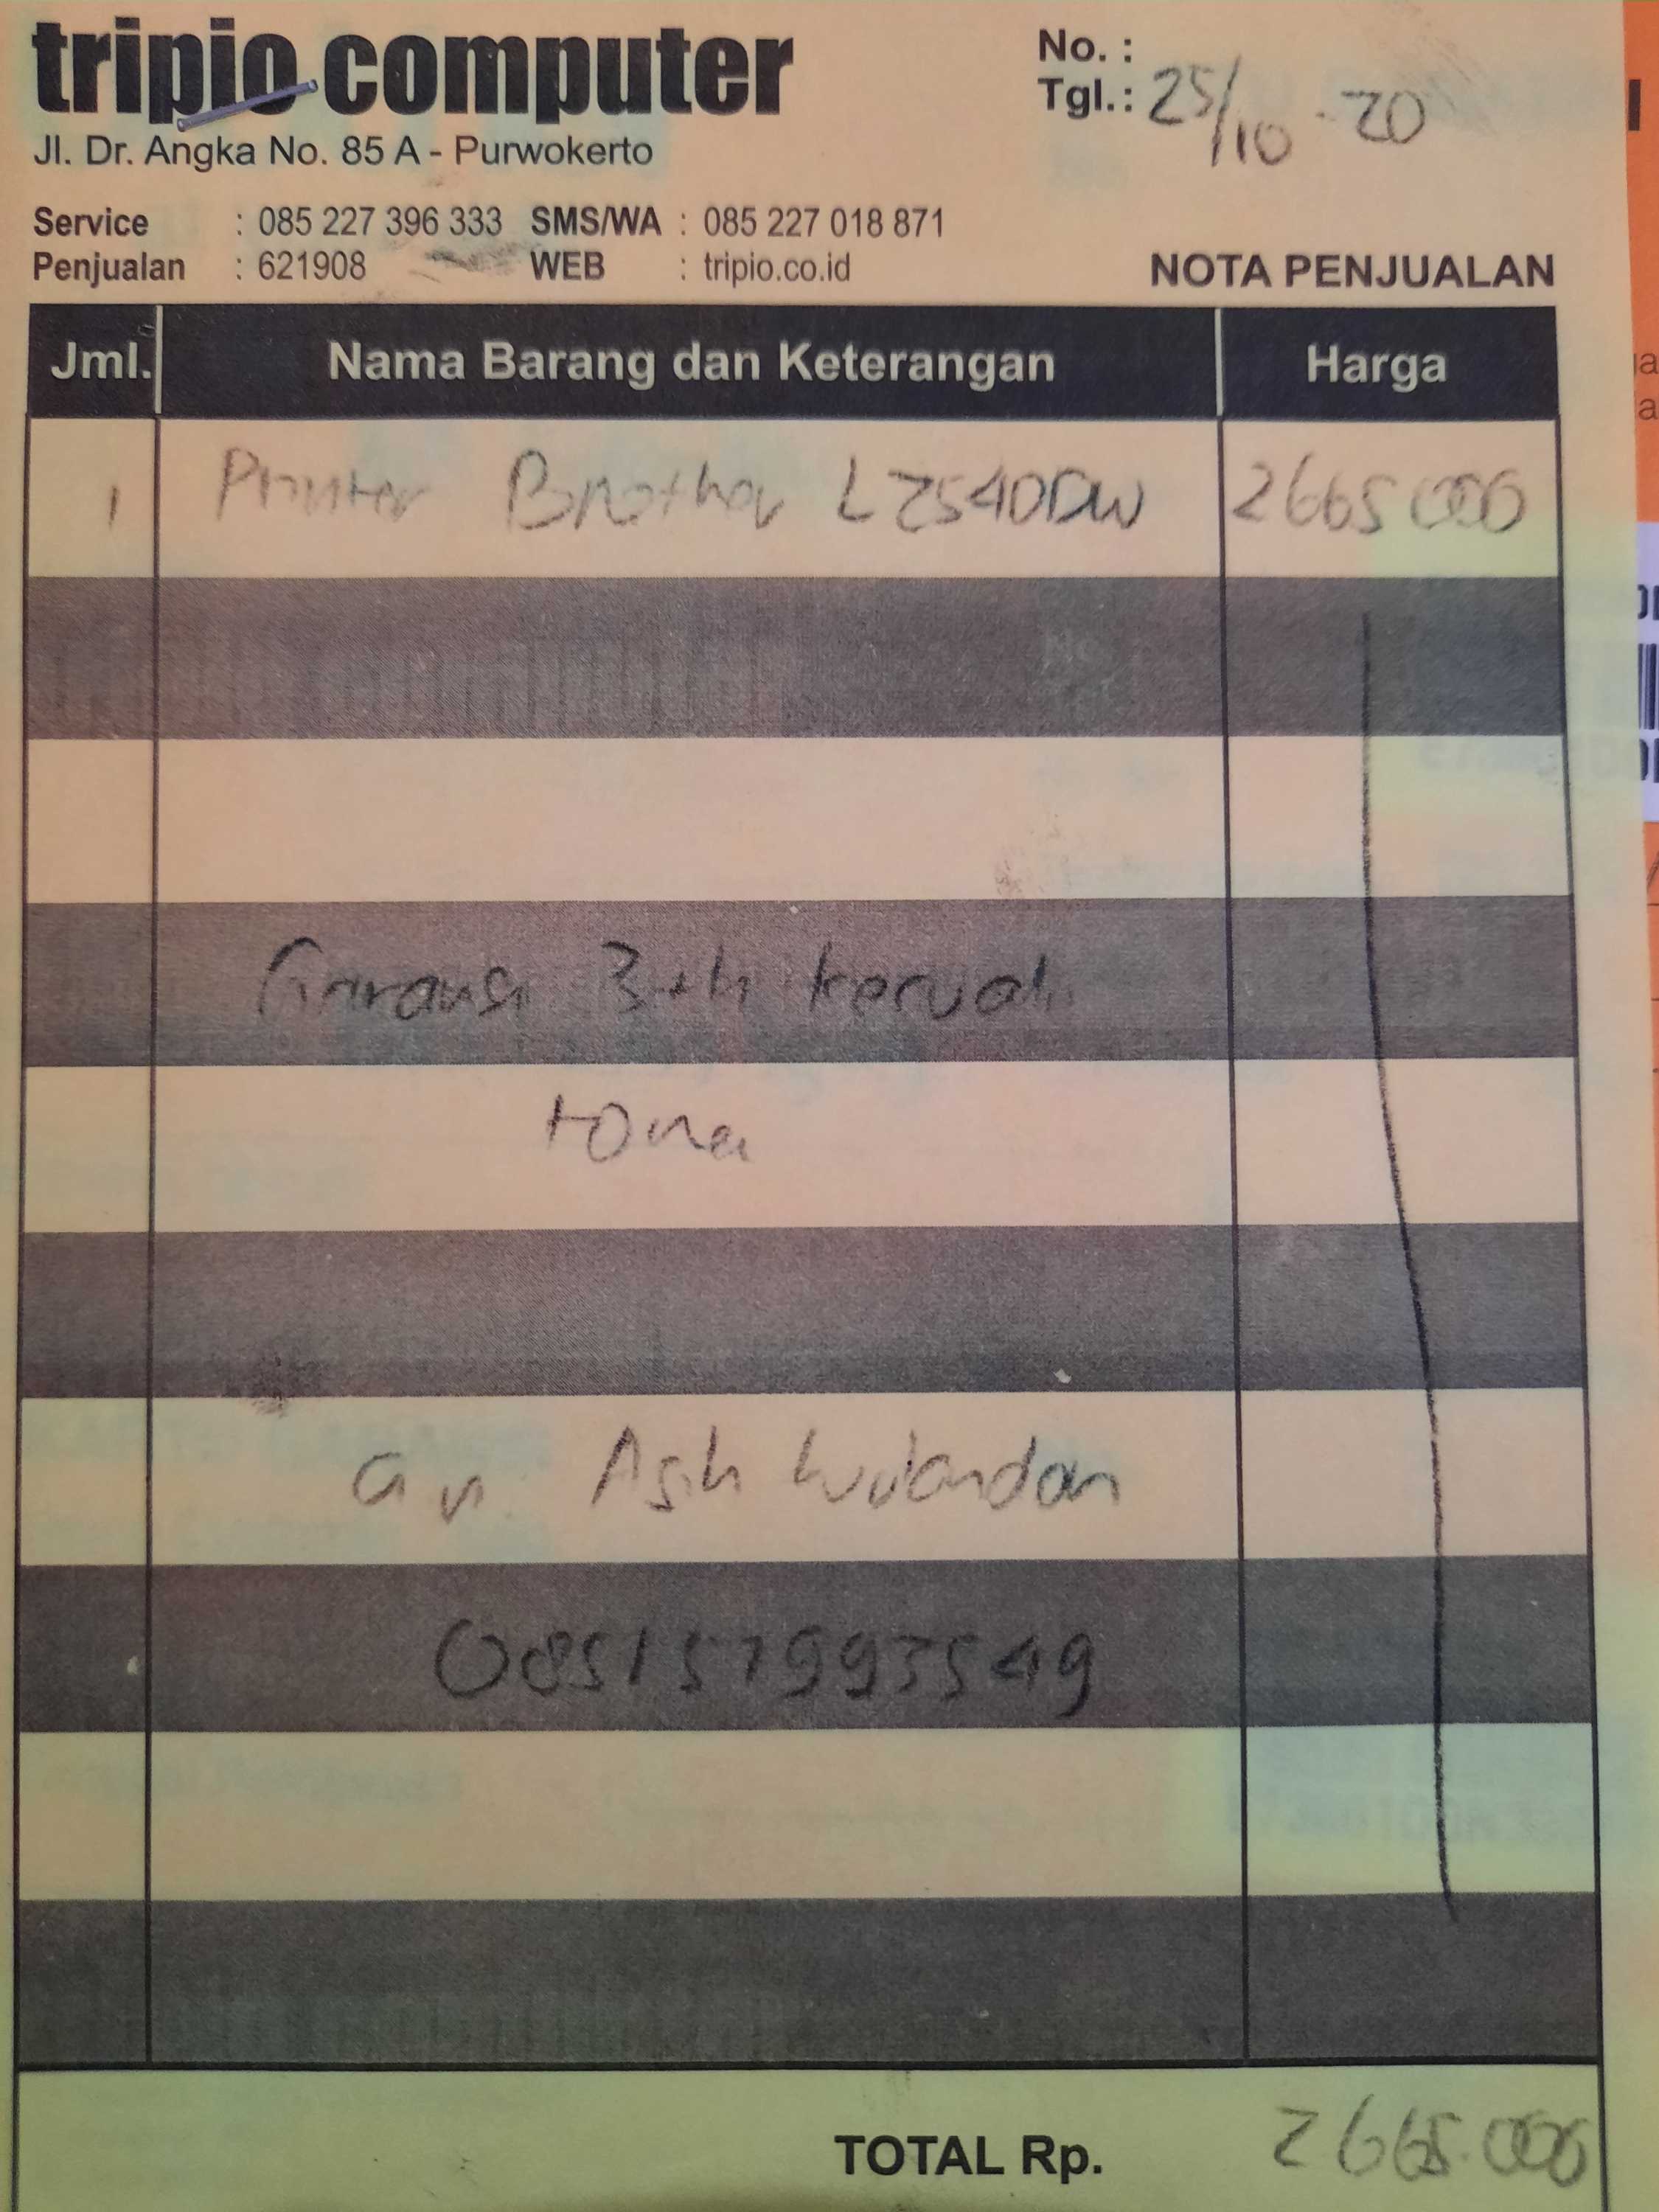 tripio computer
Jl. Dr. Angka No. 85 A - Purwokerto
No. :
Tgl. : 25/10 - 20
Service : 085 227 396 333 SMS/WA : 085 227 018 871
Penjualan : 621908 WEB : tripio.co.id
NOTA PENJUALAN
Jml. Nama Barang dan Keterangan Harga
1 Printer Brother L2540DW 2665000
Garansi 3 th kecuali
toner
an Asih Wulandari
TOTAL Rp. 2665.000